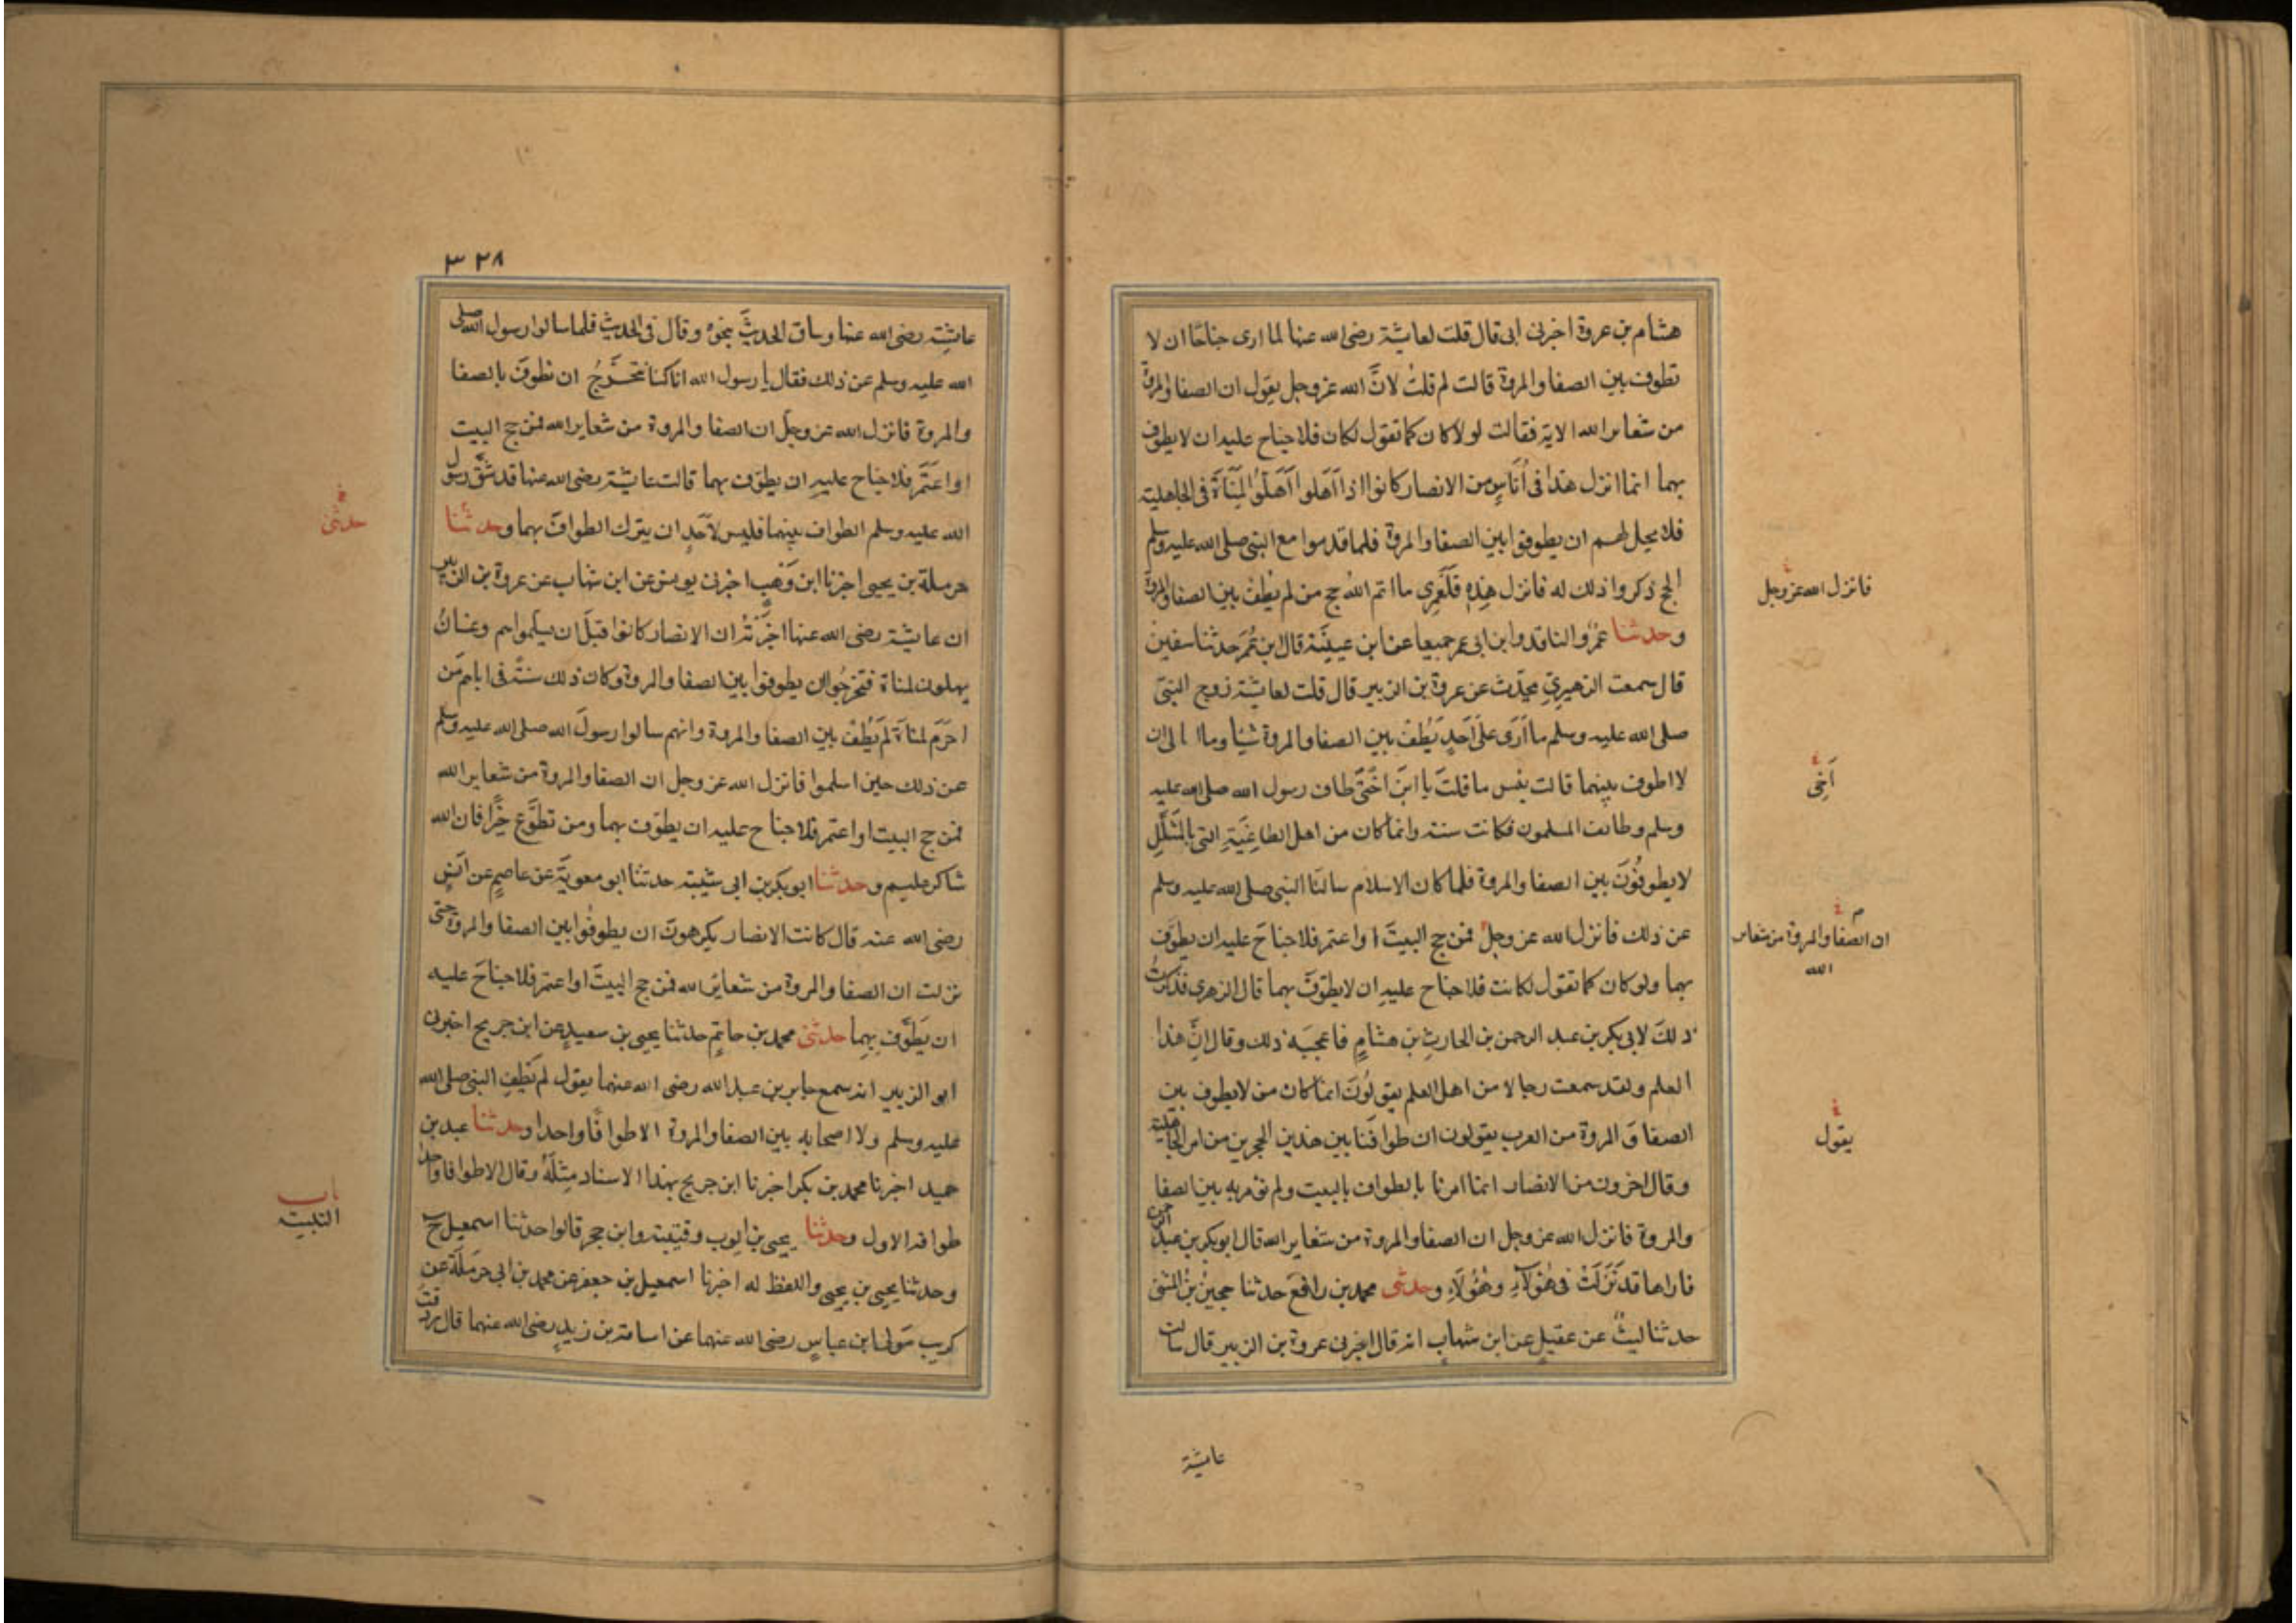 هشام بن عروة اخبرنى ابى قال قلت لعايشة رضى الله عنها لما ارى جناحًا ان لا
تطوف بين الصفا والمروة قالت لم قلتُ لانَّ الله عز وجل يقول ان الصفا والمروة
من شعاير الله الاية فقالت لو لا كان كما تقول لكان فلا جناح عليه ان لا يطوف
بهما انما انزل هذا فى أناسٍ من الانصار كانوا اذا اهلوا اهلوا لمناة فى الجاهلية
فلا يحل لهم ان يطوفوا بين الصفا والمروة فلما قدموا مع النبى صلى الله عليه وسلم
الحج ذكروا ذلك له فانزل هذه فلعمرى ما اتم الله حج من لم يطف بين الصفا والمروة
فانزل الله عز وجل
وحدثنا عمرو الناقد وابن ابى عمر جميعا عن ابن عيينة قال ابن عمر حدثنا سفين
قال سمعت الزهيرى يحدّث عن عروة بن الزبير قال قلت لعايشة زوج النبى
صلى الله عليه وسلم ما ارى على احدٍ يطف بين الصفا والمروة شيأ وما ا الى ان
لا اطوف بينهما قالت بئس ما قلت يا ابن اختى طاف رسول الله صلى الله عليه
أخى
وسلم وطاف المسلمون فكانت سنة وانما كان من اهل الطاغية التى بالمشلل
لا يطوفون بين الصفا والمروة فلما كان الاسلام سالنا النبى صلى الله عليه وسلم
عن ذلك فانزل الله عز وجل فمن حج البيت او اعتمر فلا جناح عليه ان يطوف
ان الصفا والمروة من شعاير
الله
بهما ولو كان كما تقول لكانت فلا جناح عليه ان لا يطوف بهما قال الزهرى فذكرت
ذلك لابى بكر بن عبد الرحمن بن الحارث بن هشام فاعجبه ذلك وقال انّ هذا
العلم ولقد سمعت رجالا من اهل العلم يقولون انما كان من لا يطوف بين
الصفا والمروة من العرب يقولون ان طوافنا بين هذين الحجرين من امر الجاهلية
يقول
وقال اخرون من الانصار انما امرنا بالطواف بالبيت ولم نؤمر به بين الصفا
والمروة فانزل الله عز وجل ان الصفا والمروة من شعاير الله قال ابو بكر بن عبد الرحمن
فاراها قد نزلت فى هؤلاء وهؤلاء وحدثنى محمد بن رافع حدثنا حجين بن المثنى
حدثنا ليث عن عقيل عن ابن شهاب انه قال اخبرنى عروة بن الزبير قال سالت
عايشة
٣٢٨
عايشة رضى الله عنها وساق الحديث بنحوه وقال فى الحديث فلما سالوا رسول الله صلى
الله عليه وسلم عن ذلك فقال يا رسول الله انا كنا نتحرج ان نطوف بالصفا
والمروة فانزل الله عز وجل ان الصفا والمروة من شعاير الله فمن حج البيت
او اعتمر فلا جناح عليه ان يطوف بهما قالت عايشة رضى الله عنها قد شق رسول
الله عليه وسلم الطواف بينهما فليس لاحد ان يترك الطواف بهما وحدثنا
حدثنى
حرملة بن يحيى اخبرنا ابن وهب اخبرنى يونس عن ابن شهاب عن عروة بن الزبير
ان عايشة رضى الله عنها اخبرته ان الانصار كانوا قبل ان يسلموا هم وغسان
يهلون لمناة فتحرجوا ان يطوفوا بين الصفا والمروة وكان ذلك سنة فى ابايهم من
احرم لمناة لم يطف بين الصفا والمروة وانهم سالوا رسول الله صلى الله عليه وسلم
عن ذلك حين اسلموا فانزل الله عز وجل ان الصفا والمروة من شعاير الله
فمن حج البيت او اعتمر فلا جناح عليه ان يطوف بهما ومن تطوع خيرا فان الله
شاكر عليم وحدثنا ابو بكر بن ابى شيبة حدثنا ابو معوية عن عاصم عن انس
رضى الله عنه قال كانت الانصار يكرهون ان يطوفوا بين الصفا والمروة حتى
نزلت ان الصفا والمروة من شعاير الله فمن حج البيت او اعتمر فلا جناح عليه
ان يطوف بهما حدثنى محمد بن حاتم حدثنا يحيى بن سعيد عن ابن جريج اخبرنى
ابو الزبير انه سمع جابر بن عبد الله رضى الله عنهما يقول لم يطف النبى صلى الله
عليه وسلم ولا اصحابه بين الصفا والمروة الا طوافًا واحدا وحدثنا عبد بن
حميد اخبرنا محمد بن بكر اخبرنا ابن جريج بهذا الاسناد مثله وقال الا طوافا واحدا
طوافه الاول وحدثنا يحيى بن ايوب وقتيبة وابن حجر قالوا حدثنا اسمعيل ح
باب
التلبية
وحدثنا يحيى بن يحيى واللفظ له اخبرنا اسمعيل بن جعفر عن محمد بن ابى حرملة عن
كريب مولى ابن عباس رضى الله عنهما عن اسامة بن زيد رضى الله عنهما قال ردفت